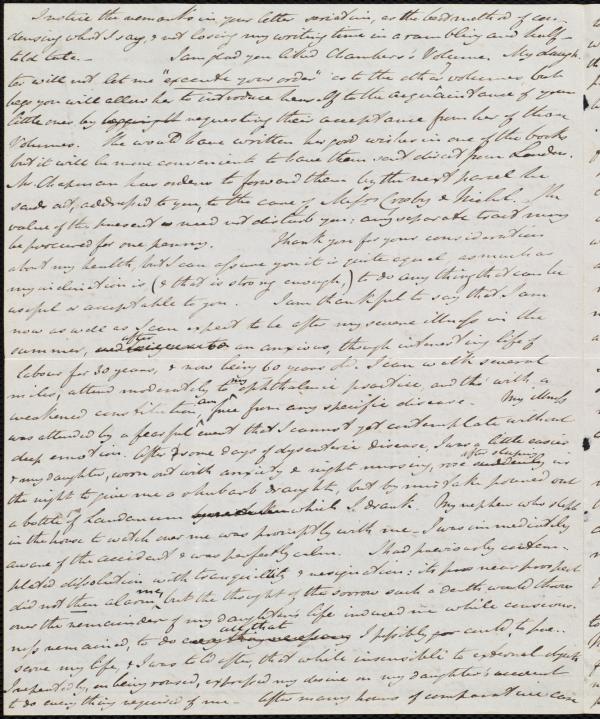 I notice the remarks in your letter seriatim, as the best method of con-
densing what I say, & not losing my writing time in a rambling and half-
told tale. — I am glad you liked Chambers's Volume. My daugh-
ter will not let me "execute your order" as to the other volumes, but
begs you will allow her to introduce herself to the acquaintance of your
little ones by requesting their acceptance from her of those
Volumes. She would have written her good wishes in one of the books
but it will be more convenient to have them sent direct from London.
Mr Chapman has orders to forward them by the next parcel he
sends out, addressed to you, to the care of Messrs Crosby & Nichols. The
value of the present need not disturb you; any separate tract may
be procured for one penny. Thank you for your consideration
about my health, but I can assure you it is quite equal, as much as
my inclination is (& that is strong enough,) to do any thing that can be
useful or acceptable to you. I am thankful to say that I am
now as well as I can expect to be after my severe illness in the
summer, after an anxious, though interesting life of
labour for 30 years, & now being 60 years old. I can walk several
miles, attend moderately to my ophthalmic practice, and tho' with a
weakened constitution, am free from any specific disease. My illness
was attended by a fearful event that I cannot yet contemplate without
deep emotion. After some days of dysenteric disease, I was a little easier
& my daughter, worn out with anxiety & night nursing, rose after sleeping in
the night to give me a rhubarb draught, but by mistake poured out
a bottle of Laudanum which I drank. My nephew who slept
in the house to watch over me was promptly with me. I was immediately
aware of the accident & was perfectly calm. I had previously contem-
plated dissolution with tranquillity & resignation: its near prospect
did not then alarm me, but the thought of the sorrow such a death would throw
over the remainder of my daughter's life induced me while conscious-
ness remained, to do all that I possibly could, to pre-
serve my life, & I was told after, that while insensible to external objects
I repeatedly, on being roused, expressed my desire on my daughter's account
to do every thing required of me — After many hours of comparative ease